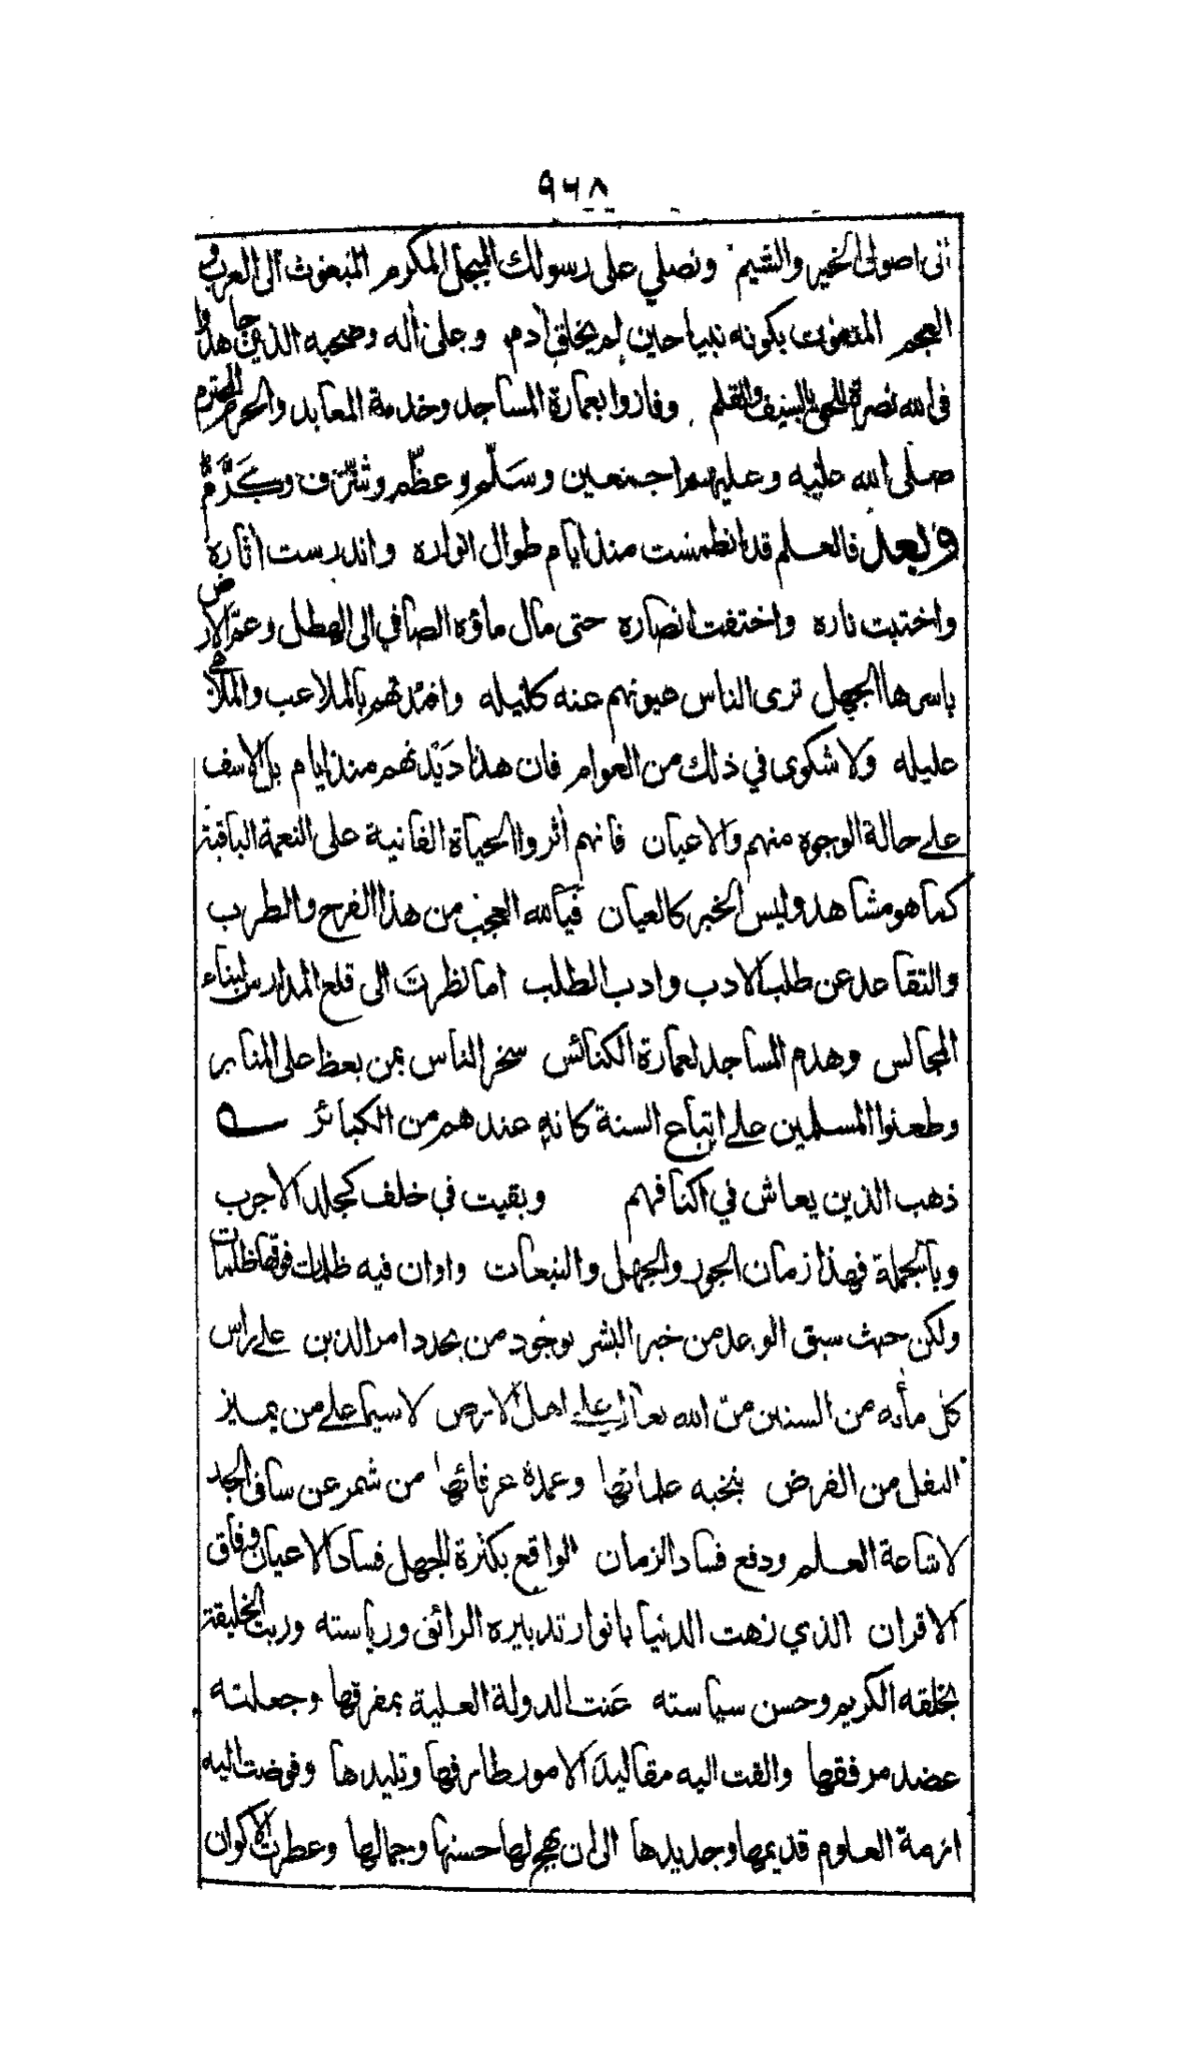 ٩٦٨
اني اصول الخير والشيم ونصلي على رسولك المبجل المكرم المبعوث الى العرب و
العجم المنعوت بكونه نبيا حين لم يخلق آدم وعلى آله وصحبه الذين جاهدوا
في الله نصرة للحق بالسيف والقلم وفازوا بعمارة المساجد وخدمة المعابد والحرم المحترم
صلى الله عليه وعليهم اجمعين وسَلّم وعظّم وشرّف وكَرَّمَ
وبعد فالعلم قد انطمست منذ ايام طوال انواره واندرست اثاره
واختبت ناره واختفت انصاره حتى مال ماؤه الصافي الى الهطل وعمّ الارض
باسرها الجهل ترى الناس عيونهم عنه كليله وافئدتهم بالملاعب والملاهي
عليله ولا شكوى في ذلك من العوام فان هذا دَيْدنهم منذ ايام بل الاسف
على حالة الوجوه منهم والاعيان فانهم أثروا الحياة الفانية على النعمة الباقية
كما هو مشاهد وليس الخبر كالعيان فيالله العجب من هذا الفرح والطرب
والتقاعد عن طلب الادب وادب الطلب اما نظرتَ الى قلع المدارس لبناء
المجالس وهدم المساجد لعمارة الكنائس سخر الناس بمن يعظ على المنابر
وطعنوا المسلمين على اتباع السنة كانه عندهم من الكبائر
ذهب الذين يعاش في اكنافهم وبقيت في خلف كجلد الاجرب
وبالجملة فهذا زمان الجور والجهل والتبعات واوان فيه ظلمات فوقها ظلمات
ولكن حيث سبق الوعد من خير البشر بوجود من يجدد امر الدين على راس
كل مأته من السنين منّ الله تعالى على اهل الارض لا سيما على من يميز
النفل من الفرض بنخبه علمائها وعمدة عرفائها من شمر عن ساق الجد
لاشاعة العلم ودفع فساد الزمان الواقع بكثرة الجهل فساد الاعيان وفاق
الاقران الذي زهت الدنيا بانوار تدبيره الرائق ورياسته وربت الخليقة
بخلقه الكريم وحسن سياسته عَنت الدولة العلية بمفرقها وجعلته
عضد مرفقها والقت اليه مقاليد الامور طارفها وتليدها وفوضت اليه
ازمة العلوم قديمها وجديدها الى ان بهج لها حسنها وجمالها وعطرت الاكوان